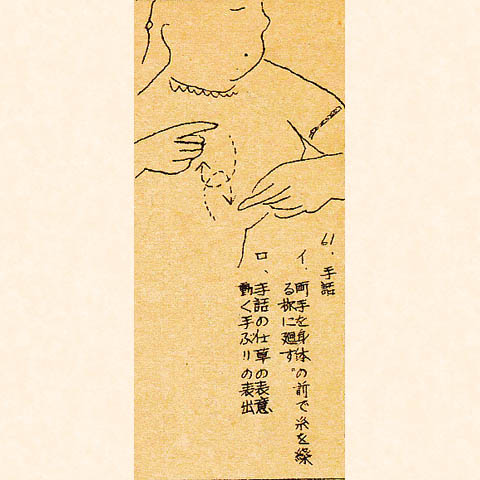 61. 手話
イ. 両手を身体の前で糸を繰
る様に廻す。
ロ、手話の仕草の表意
動く手ぶりの表出